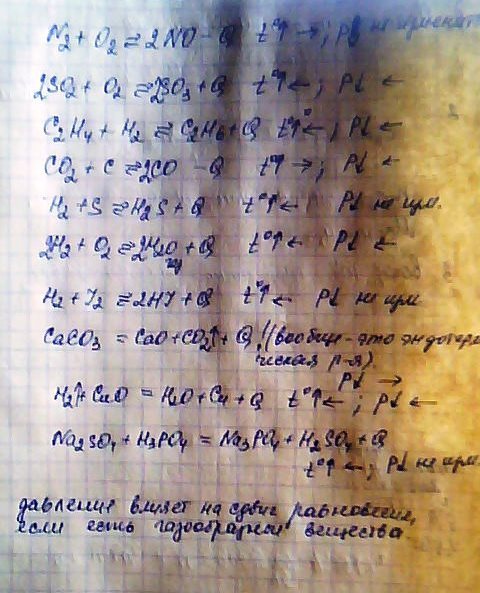 N₂ + O₂ ⇄ 2NO - Q t°↑ → ; P↓ не
2SO₂ + O₂ ⇄ 2SO₃ + Q t°↑ ← ; P↓ ←
C₂H₄ + H₂ ⇄ C₂H₆ + Q t°↑ ← ; P↓ ←
CO₂ + C ⇄ 2CO - Q t°↑ → ; P↓ ←
H₂ + S ⇄ H₂S + Q t°↑ ← P↓ не изм.
2H₂ + O₂ ⇄ 2H₂O + Q t°↑ ← P↓ ←
H₂ + J₂ ⇄ 2HJ + Q t°↑ ← P↓ не изм
CaCO₃ = CaO + CO₂↑ + Q !(вообще - это эндотерми
ческая р-я)
P↓ →
H₂↑ + CuO = H₂O + Cu + Q t°↑ ← ; P↓ ←
Na₂SO₄ + H₃PO₄ = Na₃PO₄ + H₂SO₄ + Q
t°↑ ← ; P↓ не изм.
давление влияет на сдвиг равновесия,
если есть газообразные вещества.